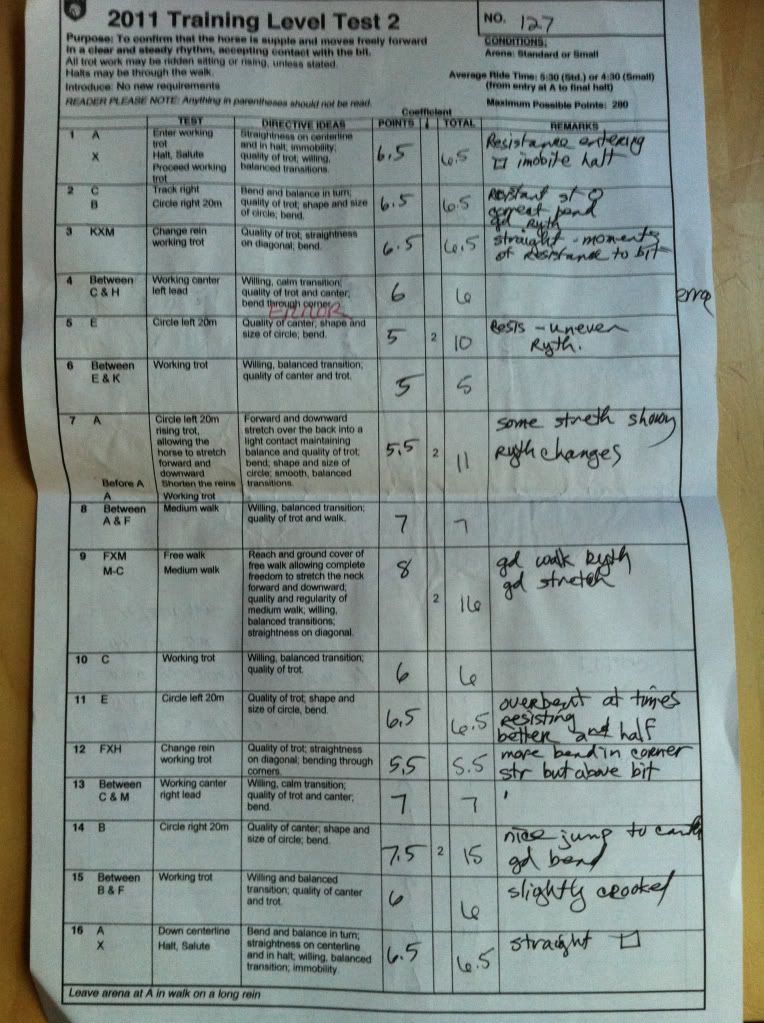 2011 Training Level Test 2
NO. 127
Purpose: To confirm that the horse is supple and moves freely forward
in a clear and steady rhythm, accepting contact with the bit.
All trot work may be ridden sitting or rising, unless stated.
Halts may be through the walk.
Introduce: No new requirements
READER PLEASE NOTE: Anything in parentheses should not be read.
CONDITIONS:
Arena: Standard or Small
Average Ride Time: 5:30 (Std.) or 4:30 (Small)
(from entry at A to final halt)
Maximum Possible Points: 280
Coefficient
TEST DIRECTIVE IDEAS POINTS TOTAL REMARKS
1 A Enter working
trot
X Halt, Salute
Proceed working
trot
Straightness on centerline
and in halt; immobility;
quality of trot; willing,
balanced transitions.
6.5 6.5
Resistance entering
imobite halt
2 C Track right
B Circle right 20m
Bend and balance in turn;
quality of trot; shape and size
of circle; bend.
6.5 6.5
correct bend
gd Ryth
3 KXM Change rein
working trot
Quality of trot; straightness
on diagonal; bend.
6.5 6.5
straight - moments
of resistance to bit
4 Between
C & H
Working canter
left lead
Willing, calm transition;
quality of trot and canter;
bend through corner.
ERROR
6 6
5 E Circle left 20m
Quality of canter; shape and
size of circle; bend.
5 2 10
Resis - uneven
Ryth.
6 Between
E & K
Working trot
Willing, balanced transition;
quality of canter and trot.
5 5
7 A Circle left 20m
rising trot,
allowing the
horse to stretch
forward and
downward
Before A Shorten the reins
A Working trot
Forward and downward
stretch over the back into a
light contact maintaining
balance and quality of trot;
bend; shape and size of
circle; smooth, balanced
transitions.
5.5 2 11
some streth show
Ryth changes
8 Between
A & F
Medium walk
Willing, balanced transition;
quality of trot and walk.
7 7
9 FXM Free walk
M-C Medium walk
Reach and ground cover of
free walk allowing complete
freedom to stretch the neck
forward and downward;
quality and regularity of
medium walk; willing,
balanced transitions;
straightness on diagonal.
8 2 16
gd walk Ryth
gd stretch
10 C Working trot
Willing, balanced transition;
quality of trot.
6 6
11 E Circle left 20m
Quality of trot; shape and
size of circle, bend.
6.5 6.5
overbent at times
resisting
better 2nd half
12 FXH Change rein
working trot
Quality of trot; straightness
on diagonal; bending through
corners.
5.5 5.5
more bend in corner
str but above bit
13 Between
C & M
Working canter
right lead
Willing, calm transition;
quality of trot and canter;
bend.
7 7
14 B Circle right 20m
Quality of canter; shape and
size of circle; bend.
7.5 2 15
nice jump to canter
gd bend
15 Between
B & F
Working trot
Willing and balanced
transition; quality of canter
and trot.
6 6
slightly crooked
16 A Down centerline
X Halt, Salute
Bend and balance in turn;
straightness on centerline
and in halt; willing, balanced
transition; immobility.
6.5 6.5
straight
Leave arena at A in walk on a long rein